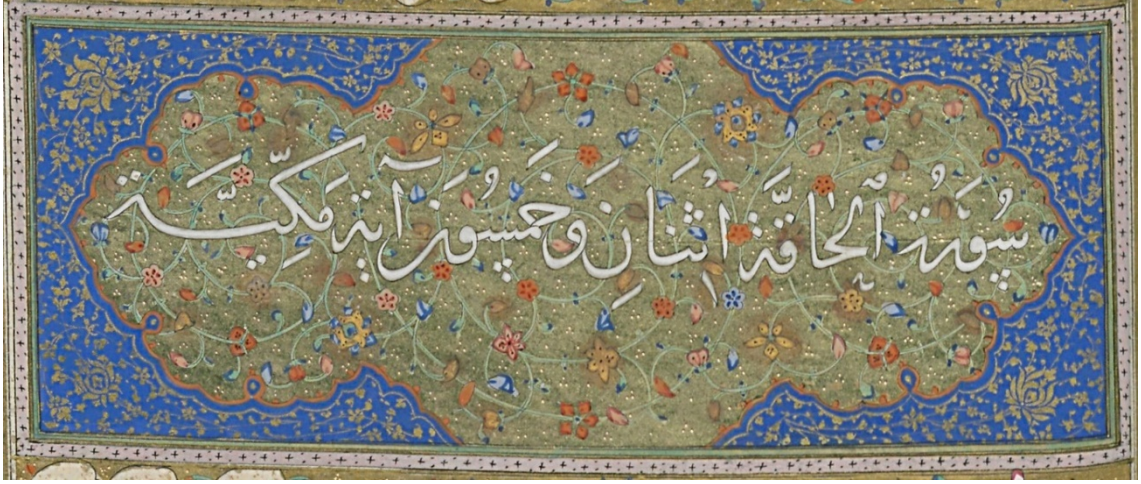 سُورَةُ ٱلْحَاقَّةِ اِثْنَانِ وَخَمْسُونَ آيَة مَكِّيَّة